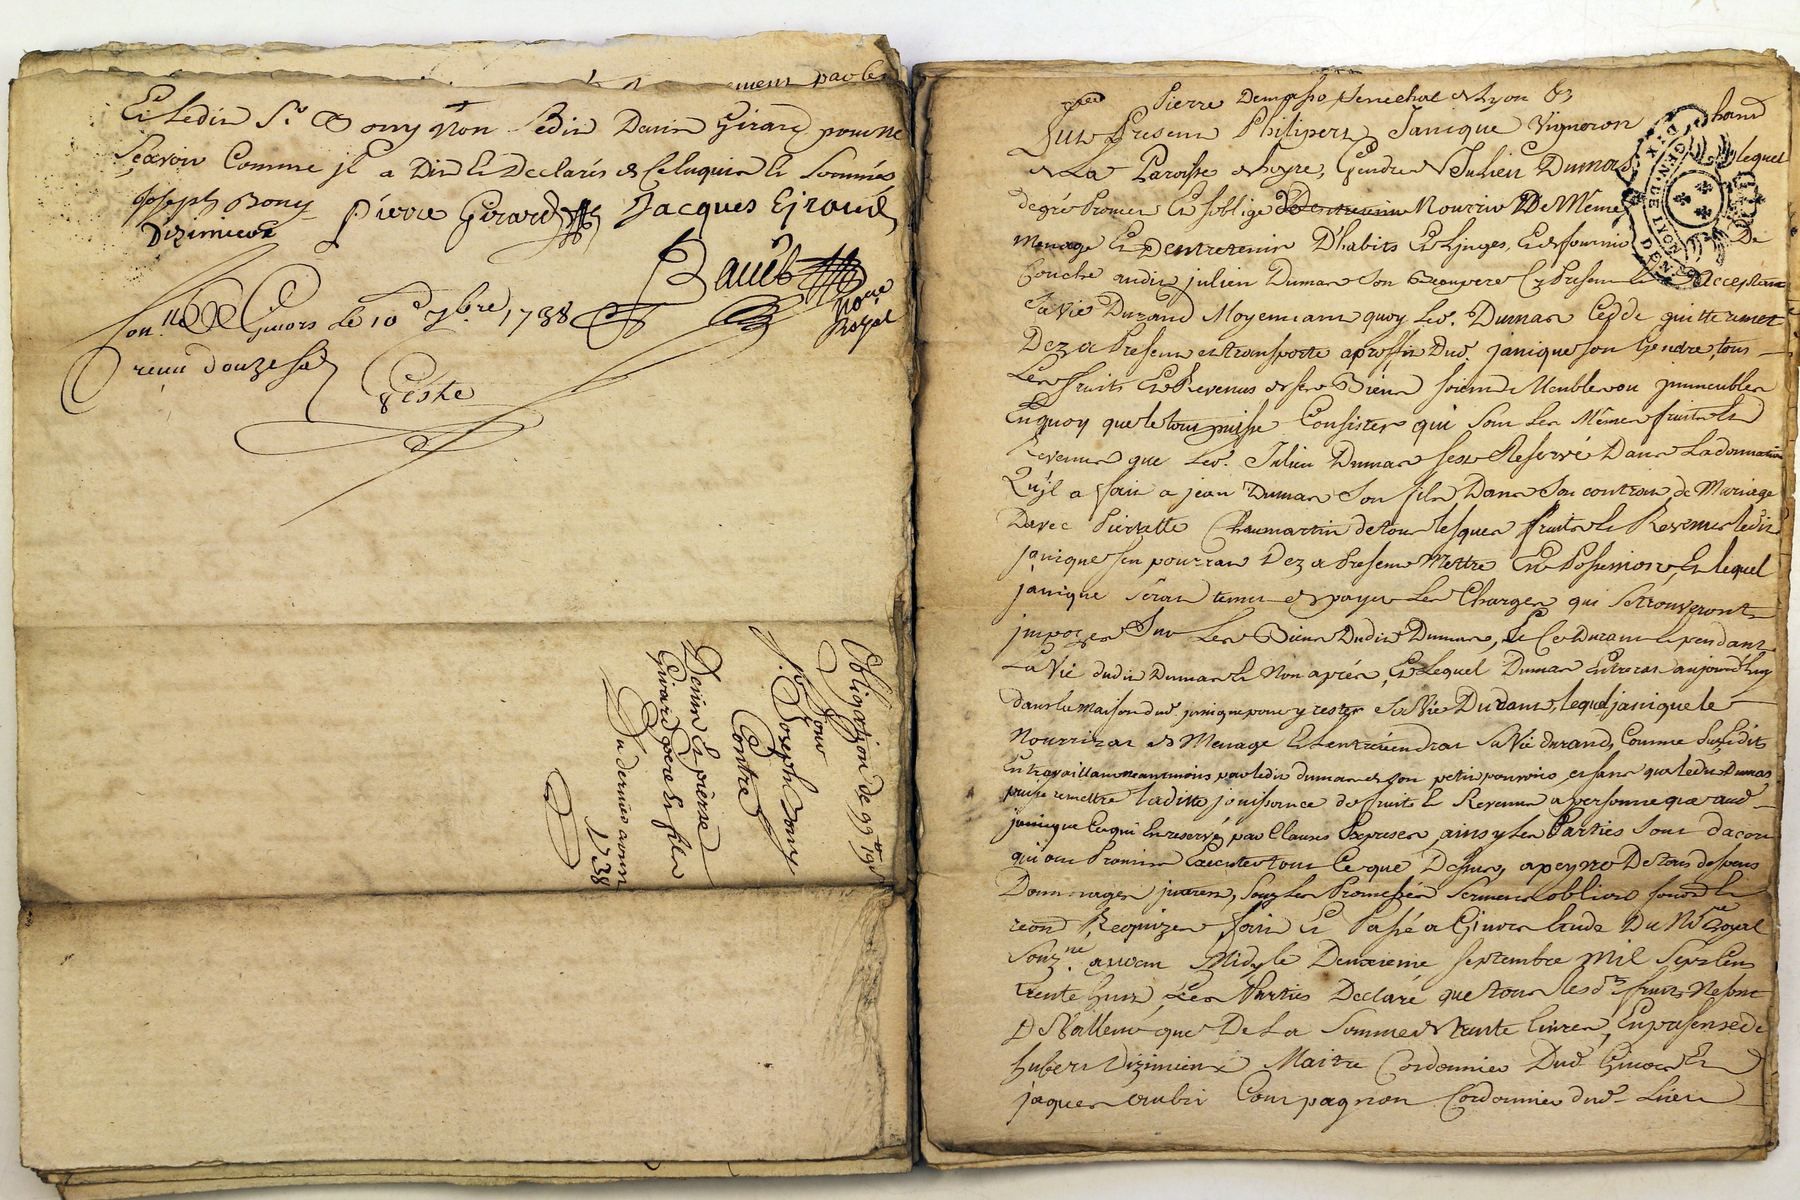 ement par les
Et ledit Sr Bony non ledit Denis Girard pour ne
Scavoir Comme jl a Dit et Declaré de Ce Enquis et Sommés
Joseph Bony Pierre Girard Jacques Giraud
Dizimieux
Baueb
No.re Royal
Con.lle A Givors le 10e 7bre 1738
reçu douze sols
Teste
Obligation de 99tt 19s
pour
Sr Joseph Bony
Contre
Denis et pierre
Girard pere et fils
Du dernier aoust
1738
Pierre Demasso senechal de Lyon &
fut Present Philipert Janique Vigneron
de La Paroisse de Loyre, Gendre de Julien Dumas lequel
degré Promet Et soblige Nourrir De Même
Menage Et Dentretenir D'habits Et Linges, Et de fournir De
Couche audit julien Dumas Son Beaupere Cy Present et Acceptant
Sa vie Durand Moyennant quoy led. Dumas Cedde quitte remet
Dez a Present et transporte aproffit Dud. janique son Gendre, tous
Les fruits Et Revenus de ses Biens soient Meubles ou jmmeubles
Enquoy que le tout puisse Consister qui sont Les Mêmes fruits Et
Revenus que led. Julien Dumas sest Reservé Dans La donnation
Qu'jl a fait a jean Dumas Son fils Dans Son contrat de Mariage
Davec Pierrette Chaumartin de tous lesquels fruits Et Revenus ledit
janique sen pourrat Dez a Present Mettre En Possession, Et lequel
janique serat tenu de payer Les Charges qui Se trouveront
jmpozes Sur Les Biens Dudit Dumas, Et Ce Durant et pendant
La Vie dudit Dumas Et Non aprés, Et Lequel Dumas Entrerat aujourd'huy
dans la Maison dud. janique pour y rester Sa Vie Durant, lequel janique le
Nourrirat de Menage Et Entretiendrat Sa Vie durand, Comme Susdit
En travaillant neantmoins par ledit dumas de Son petit pouvoir, et sans que ledit Dumas
puisse remettre ladite jouissance des fruits Et Revenus a personne que aud.
janique Ce qui Est reservé par Clauses Expresse, ainsy Les Parties Sont dacord
qui ont Promis Executer tout Ce que Dessus, a peyne De tous despens
Dommages jnterets, Sous Les Promesses Serment obligation
Requizes fait Et Passé a Givors Etude Du No.re Royal
Souz.né avant Midy le Deuxieme Septembre Mil Sept Cens
trente huit Les Parties Declaré que tous lesd. fruits Ne sont
De Valleur que De La Somme de trente livres, En presence de
hubert Dizimieux Maitre Cordonnier Dud. Givors Et
jaques Compagnon Cordonnier dud. Lieu
GEN. DE LYON